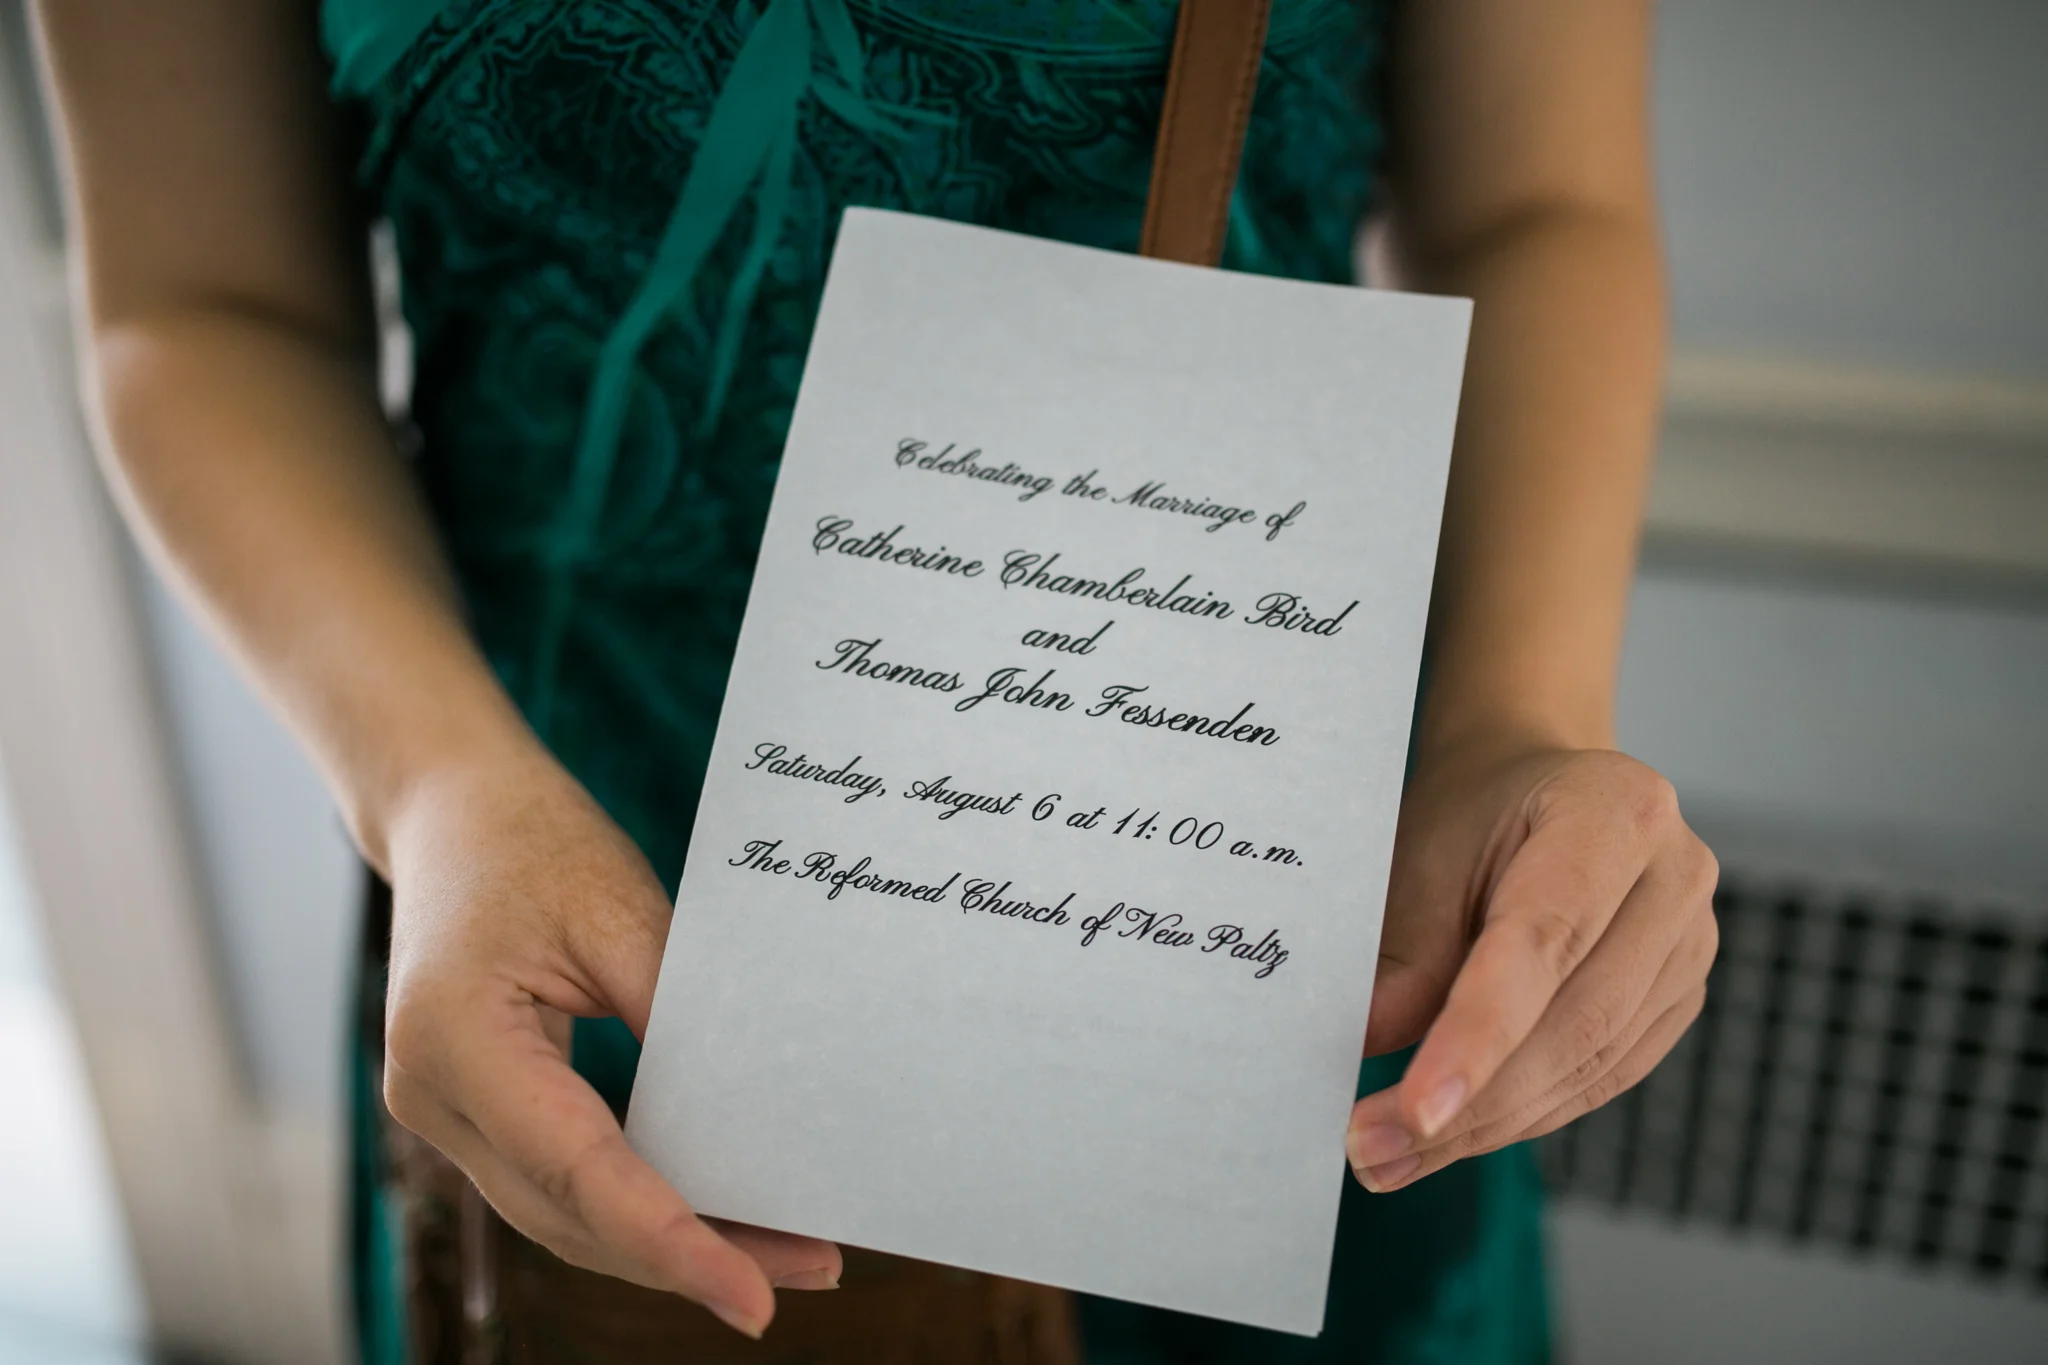 Celebrating the Marriage of
Catherine Chamberlain Bird
and
Thomas John Fessenden
Saturday, August 6 at 11:00 a.m.
The Reformed Church of New Paltz